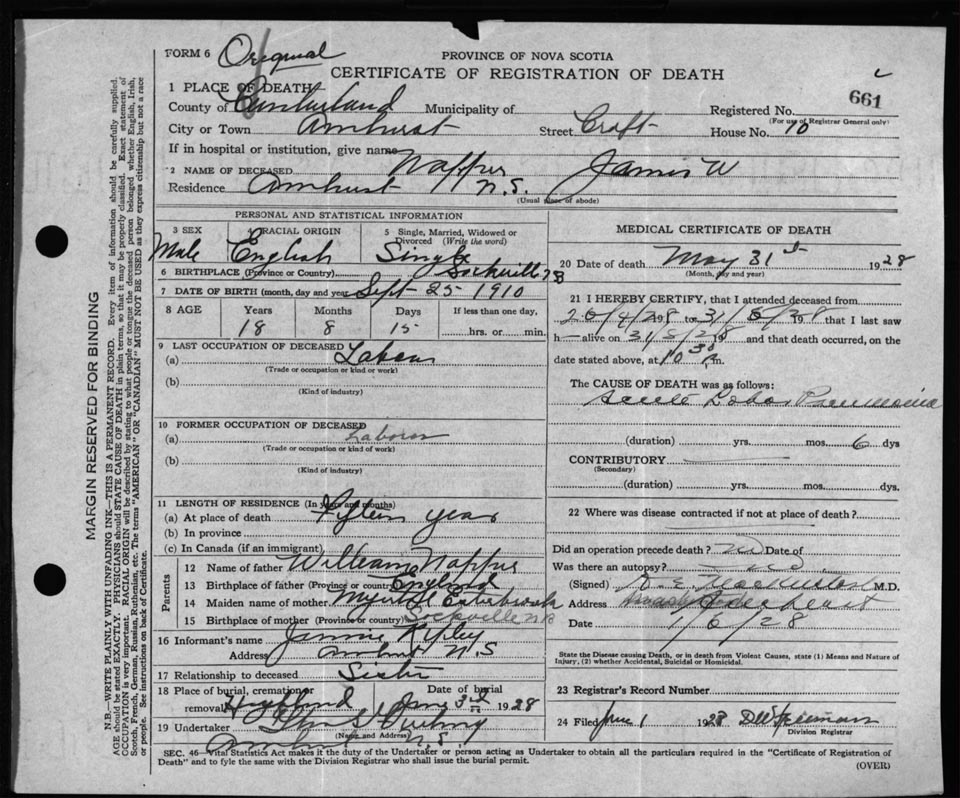 FORM 6 Original
PROVINCE OF NOVA SCOTIA
CERTIFICATE OF REGISTRATION OF DEATH
661
1 PLACE OF DEATH
County of Cumberland Municipality of Registered No.
(For use of Registrar General only)
City or Town Amhurst Street Croft House No. 10
If in hospital or institution, give name
2 NAME OF DECEASED Napper James W
Residence Amhurst N.S.
(Usual place of abode)
PERSONAL AND STATISTICAL INFORMATION
3 SEX 4 RACIAL ORIGIN 5 Single, Married, Widowed or Divorced (Write the word)
Male English Single
6 BIRTHPLACE (Province or Country) Sackville NB
7 DATE OF BIRTH (month, day and year) Sept 25 1910
8 AGE Years Months Days If less than one day,
18 8 15 hrs. or min.
9 LAST OCCUPATION OF DECEASED
(a) Labour
(Trade or occupation or kind or work)
(b)
(Kind of industry)
10 FORMER OCCUPATION OF DECEASED
(a) Laborer
(Trade or occupation or kind of work)
(b)
(Kind of industry)
11 LENGTH OF RESIDENCE (In years and months)
(a) At place of death Fifteen year
(b) In province
(c) In Canada (if an immigrant)
Parents
12 Name of father William Napper
13 Birthplace of father (Province or Country) England
14 Maiden name of mother Myrtle Esterbrook
15 Birthplace of mother (Province or country) Sackville NB
16 Informant's name Ripley
Address Amhurst N.S
17 Relationship to deceased Sister
18 Place of burial, cremation or removal Highland Date of burial June 3rd 1928
19 Undertaker
(Name and Address)
N.S.
MEDICAL CERTIFICATE OF DEATH
20 Date of death May 31st 1928
(Month, day and year)
21 I HEREBY CERTIFY, that I attended deceased from
26/4/28 to 31/5/28 that I last saw
h— alive on 31/5/28 and that death occurred, on the
date stated above, at 10 30 P.m.
The CAUSE OF DEATH was as follows:
Acute Lobar Pneumonia
(duration) yrs. mos. 6 dys
CONTRIBUTORY
(Secondary)
(duration) yrs. mos. dys.
22 Where was disease contracted if not at place of death?
Did an operation precede death? No Date of
Was there an autopsy? No
(Signed) M.D.
Address
Date 1/6/28
State the Disease causing Death, or in death from Violent Causes, state (1) Means and Nature of
Injury, (2) whether Accidental, Suicidal or Homicidal.
23 Registrar's Record Number
24 Filed June 1 1928 DW Freeman
Division Registrar
SEC. 46—Vital Statistics Act makes it duty of the Undertaker or person acting as Undertaker to obtain all the particulars required in the "Certificate of Registration of
Death" and to fyle the same with the Division Registrar who shall issue the burial permit.
(OVER)
MARGIN RESERVED FOR BINDING
N.B.—WRITE PLAINLY WITH UNFADING INK—THIS IS A PERMANENT RECORD. Every item of information should be carefully supplied.
AGE should be stated EXACTLY. PHYSICIANS should STATE CAUSE OF DEATH in plain terms, so that it may be properly classified. Exact statement of
OCCUPATION is very important. RACIAL ORIGIN will be described by stating to what people or tongue the deceased person belonged whether English, Irish,
Scotch, French, German, Russian, Ruthenian, etc. The terms "AMERICAN" OR "CANADIAN" MUST NOT BE USED as they express citizenship but not a race
or people. See instructions on back of Certificate.